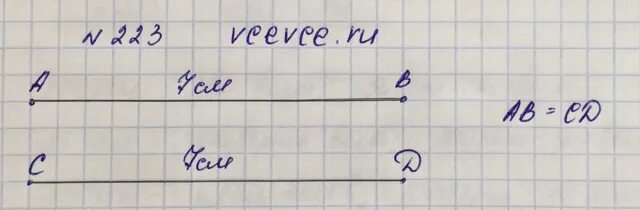 № 223 vcevce.ru
A 7см B
AB = CD
C 7см D